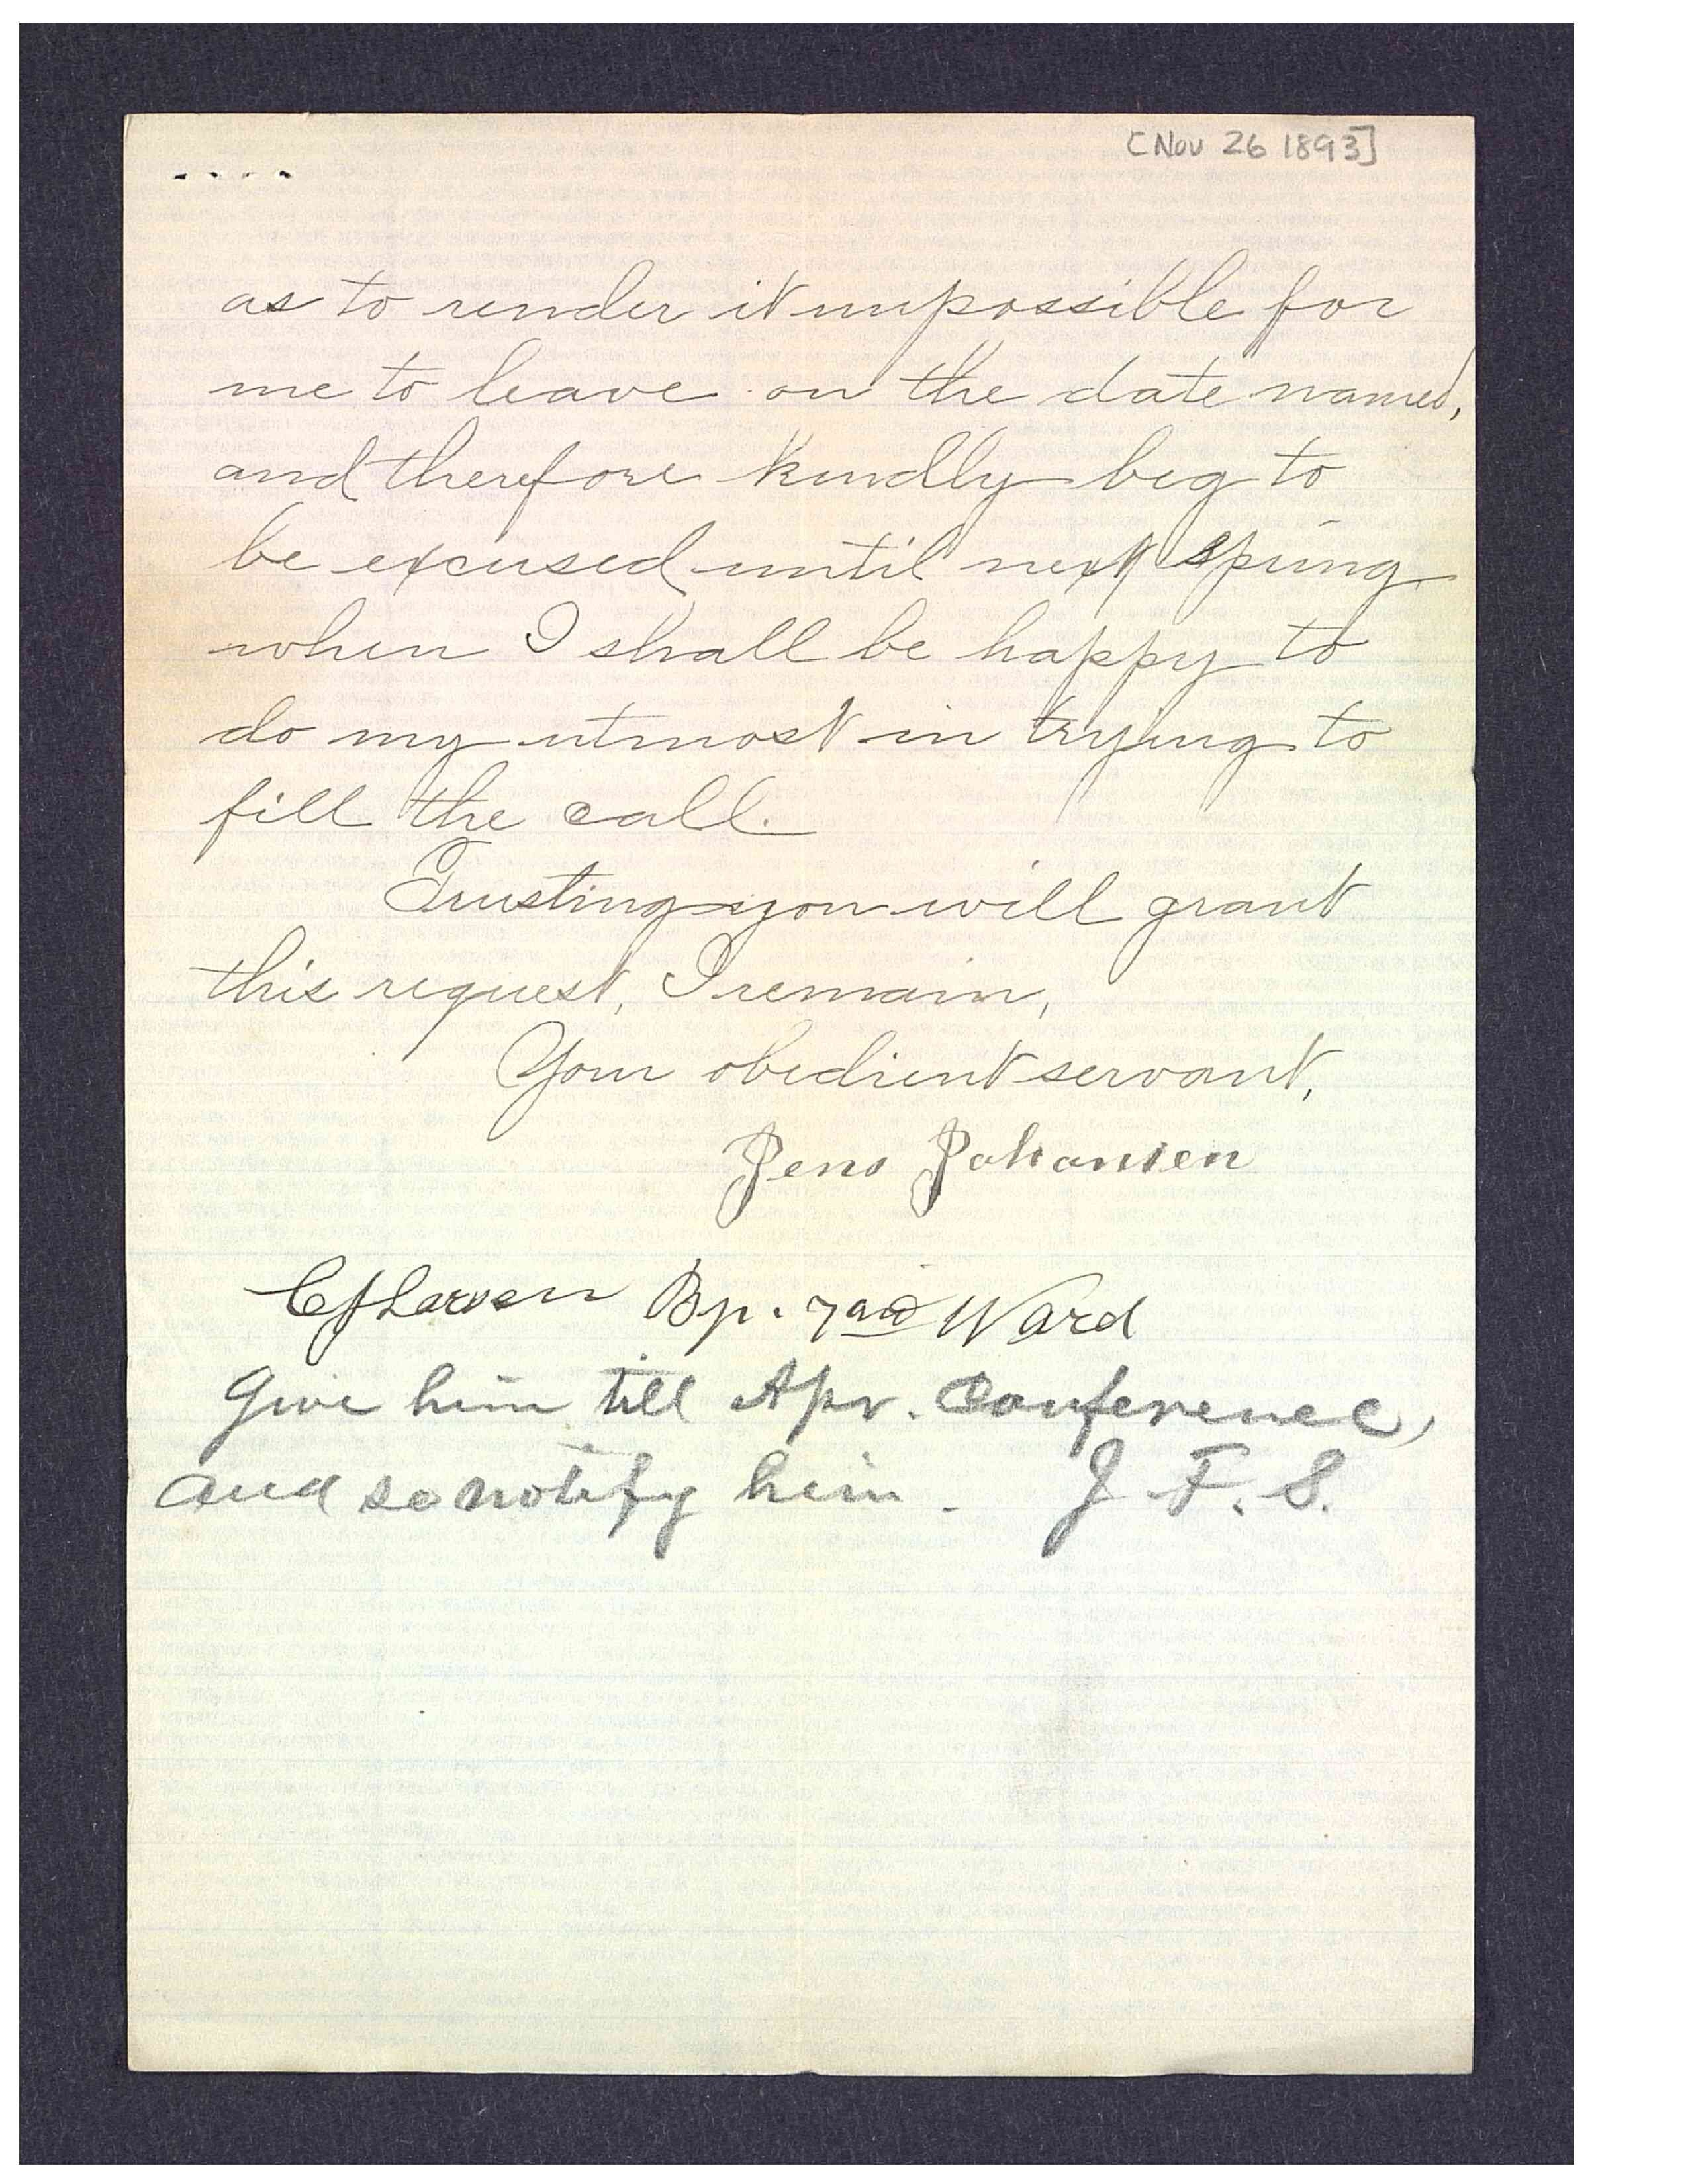 [Nov 26 1893]
as to render it impossible for
me to leave on the date named,
and therefore kindly beg to
be excused until next spring
when I shall be happy to
do my utmost in trying to
fill the call.
Trusting you will grant
this request, I remain,
Your obedient servant,
Jens Johansen
Larsen Bp. Ward
Give him till Apr. Conference,
and so notify him. J. F. S.